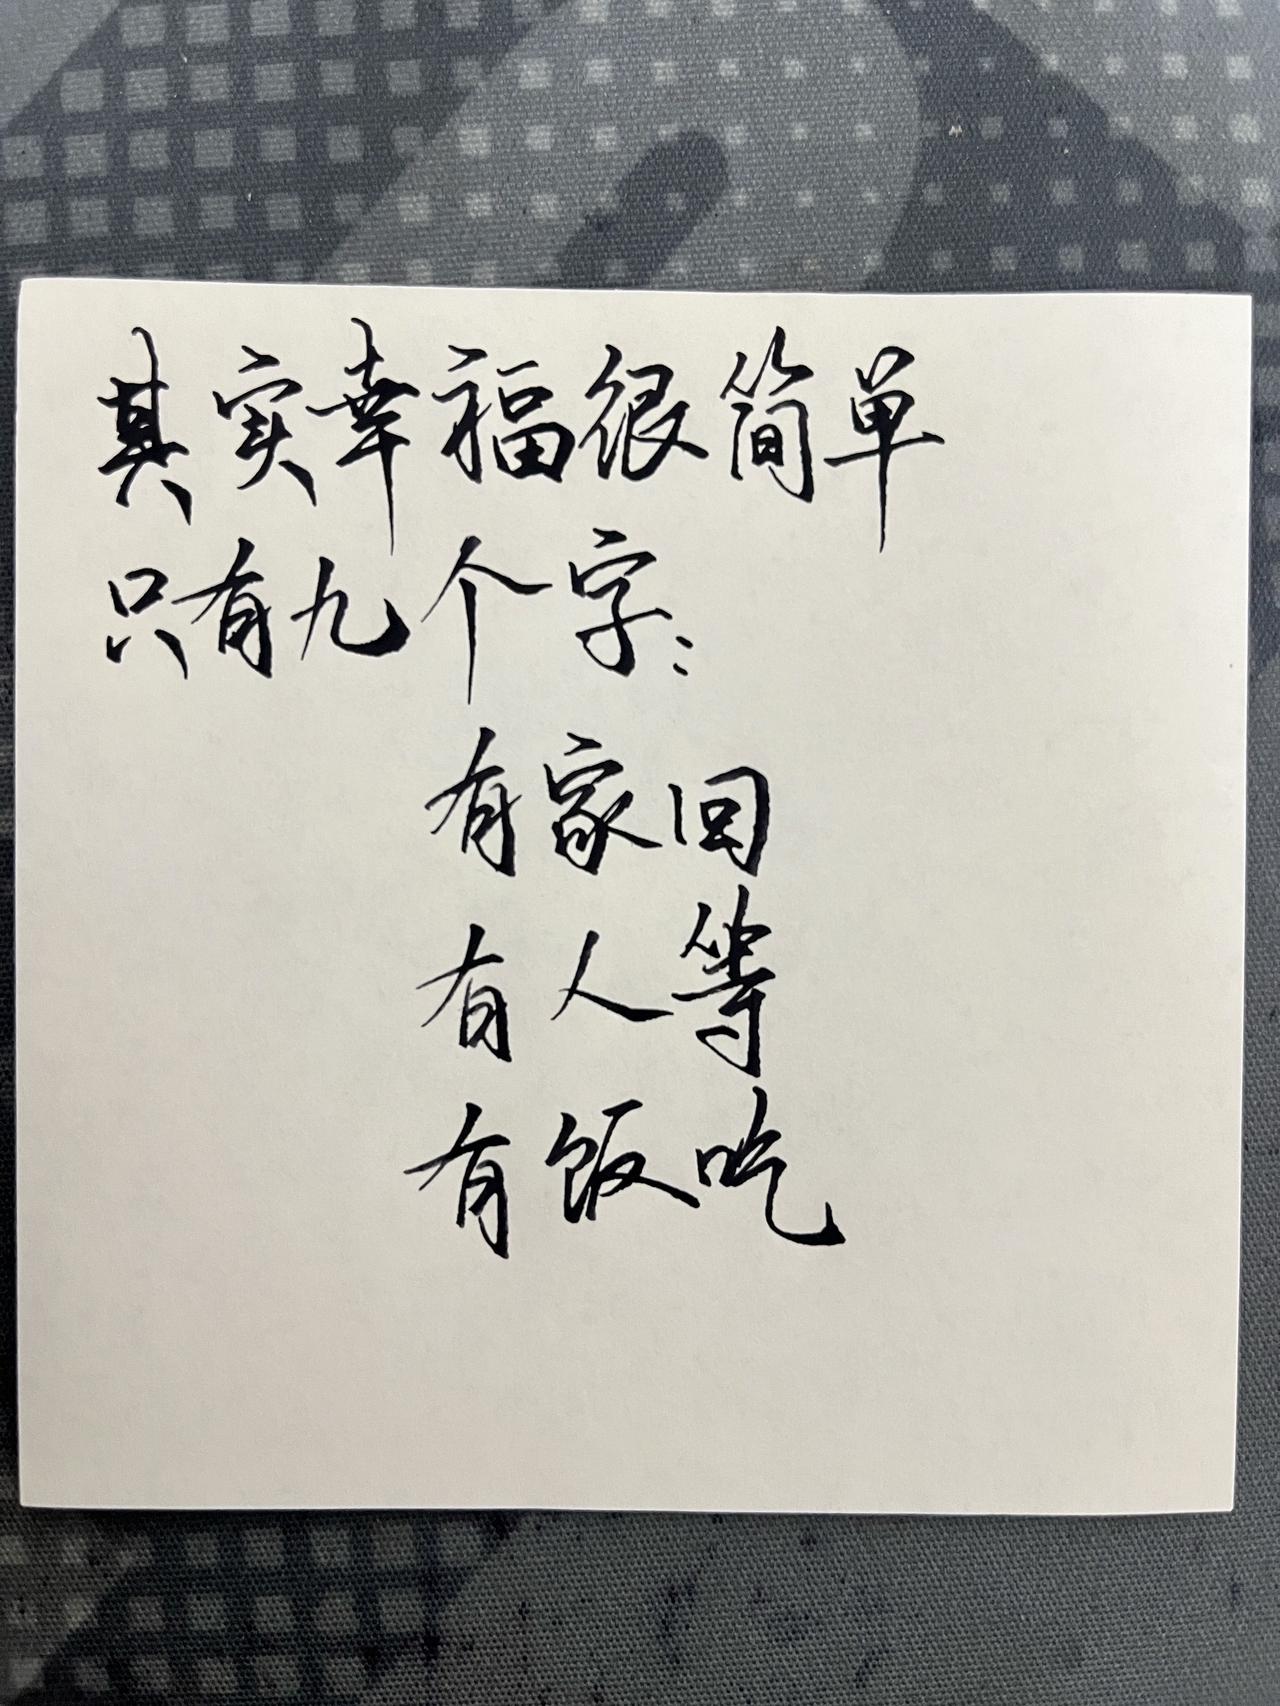 其实幸福很简单
只有九个字：
有家回
有人等
有饭吃